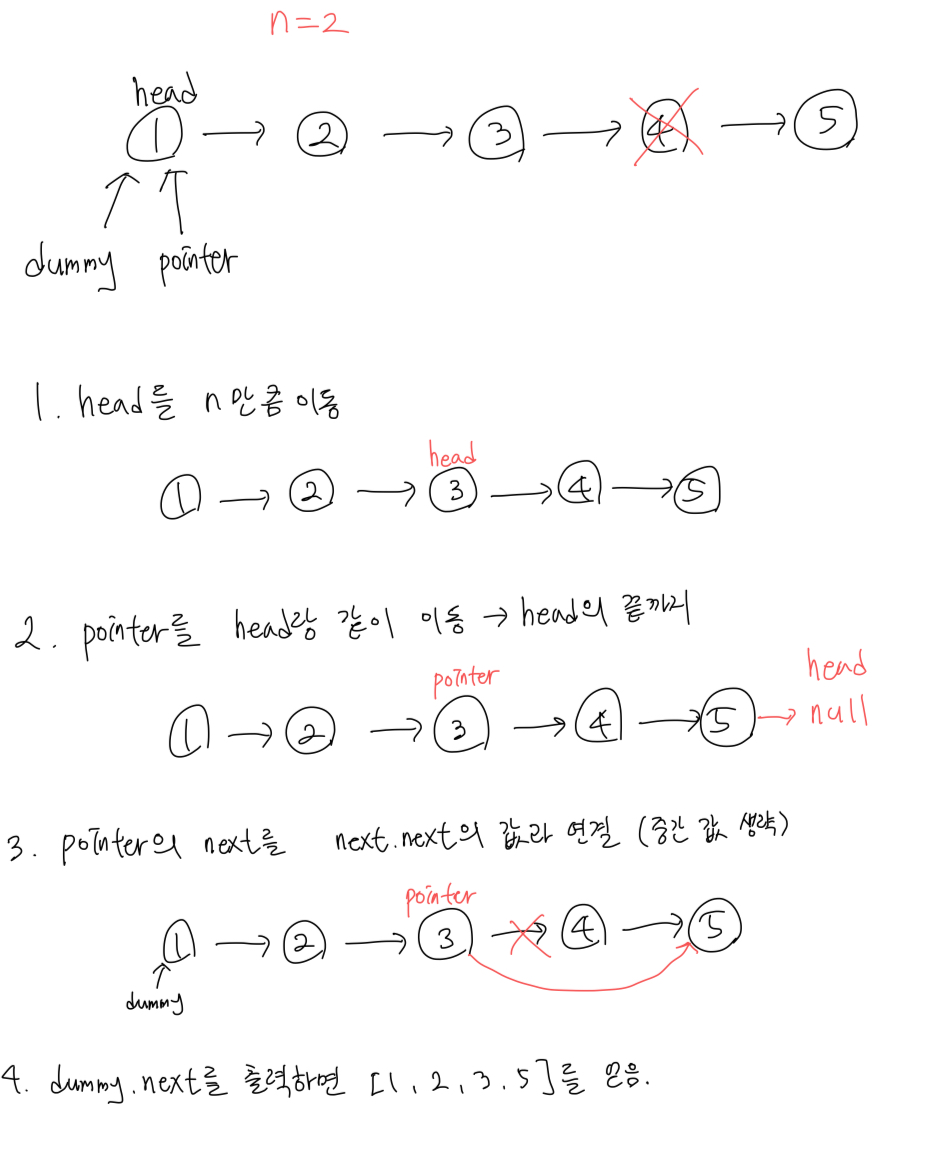 n=2
head
1 → 2 → 3 → 4 → 5
dummy pointer
1. head를 n만큼 이동
head
1 → 2 → 3 → 4 → 5
2. pointer를 head랑 같이 이동 → head의 끝까지
pointer head
1 → 2 → 3 → 4 → 5 → null
3. pointer의 next를 next.next의 값과 연결 (중간 값 생략)
pointer
1 → 2 → 3 → 4 → 5
dummy
4. dummy.next를 출력하면 [1, 2, 3, 5]를 얻음.